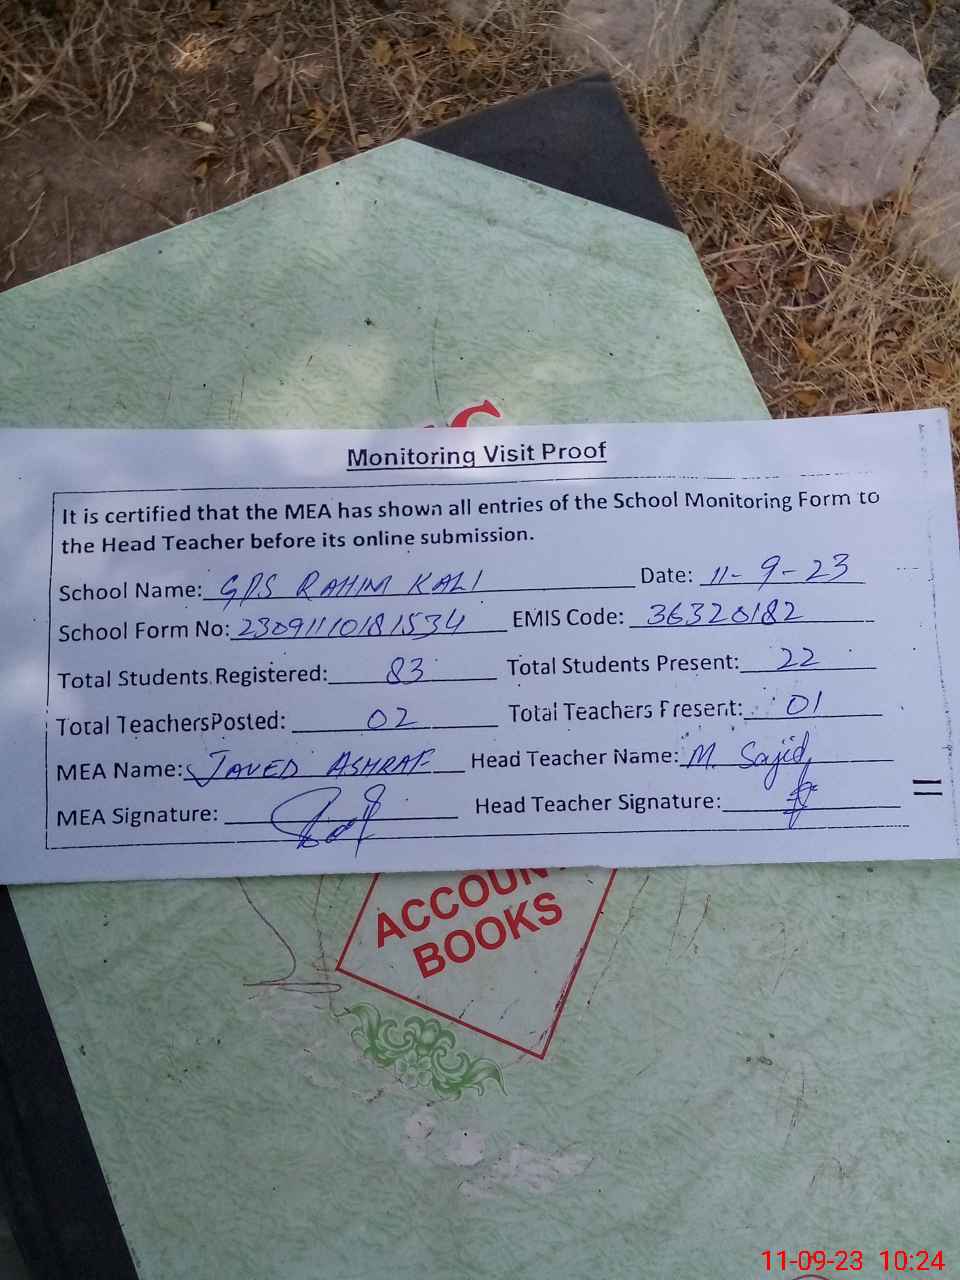 Monitoring Visit Proof
It is certified that the MEA has shown all entries of the School Monitoring Form to
the Head Teacher before its online submission.
School Name: GPS RAHIM KALI Date: 11-9-23
School Form No: 23091110181534 EMIS Code: 36320182
Total Students Registered: 83 Total Students Present: 22
Total TeachersPosted: 02 Total Teachers Present: 01
MEA Name: JAVED ASHRAF Head Teacher Name: M. Sajid
MEA Signature: Head Teacher Signature:
ACCOUNT
BOOKS
11-09-23 10:24